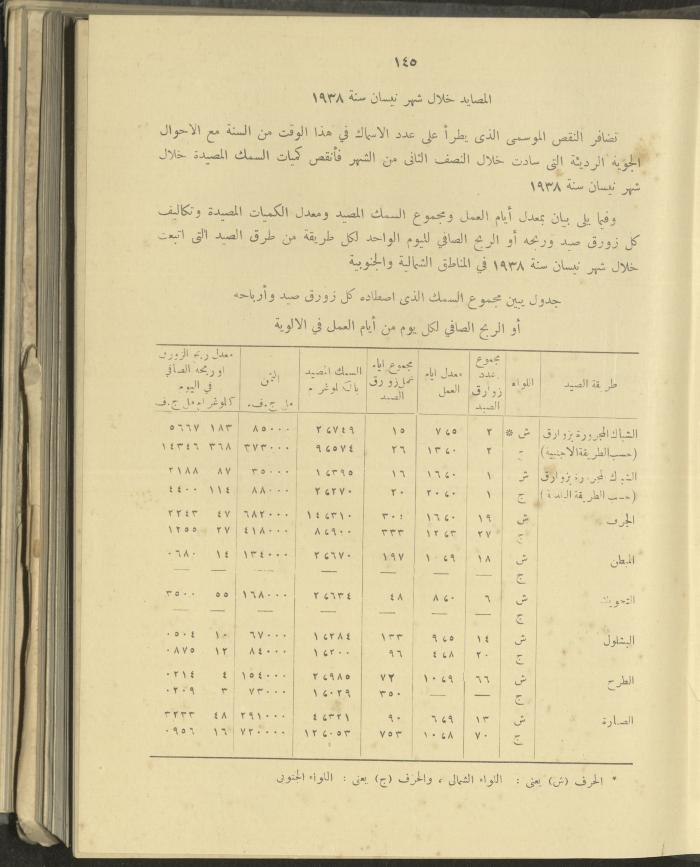 ١٤٥
المصايد خلال شهر نيسان سنة ١٩٣٨
تضافر النقص الموسمى الذى يطرأ على عدد الاسماك في هذا الوقت من السنة مع الاحوال
الجوية الرديئة التى سادت خلال النصف الثانى من الشهر فأنقص كميات السمك المصيدة خلال
شهر نيسان سنة ١٩٣٨
وفيما يلى بيان بمعدل أيام العمل ومجموع السمك المصيد ومعدل الكميات المصيدة وتكاليف
كل زورق صيد وربحه أو الربح الصافي لليوم الواحد لكل طريقة من طرق الصيد التى اتبعت
خلال شهر نيسان سنة ١٩٣٨ في المناطق الشمالية والجنوبية
جدول يبين مجموع السمك الذى اصطاده كل زورق صيد وأرباحه
أو الربح الصافي لكل يوم من أيام العمل في الالوية
طريقة الصيد اللواء مجموع عدد زوارق الصيد معدل ايام العمل مجموع ايام عمل زوارق الصيد السمك المصيد بالكيلوغرام الثمن مل ج.ف. معدل ربح الزورق او ربحه الصافي في اليوم كيلوغرام مل ج.ف
الشباك المجرورة بزوارق ش * ٢ ٧٬٥ ١٥ ٢٬٧٤٩ ٨٥٠٠٠ ١٨٣ ٥٦٦٧
(حسب الطريقة الاجنبية) ج ٢ ١٣٬٠ ٢٦ ٩٬٥٧٤ ٣٧٣٠٠٠ ٣٦٨ ١٤٣٤٦
الشباك المجرورة بزوارق ش ١ ١٦٬٠ ١٦ ١٬٣٩٥ ٣٥٠٠٠ ٨٧ ٢١٨٨
(حسب الطريقة البلدية) ج ١ ٢٠٬٠ ٢٠ ٢٬٢٧٠ ٨٨٠٠٠ ١١٤ ٤٤٠٠
الجرف ش ١٩ ١٦٬٠ ٣٠٤ ١٤٬٣١٠ ٦٨٢٠٠٠ ٤٧ ٢٢٤٣
ج ٢٧ ١٢٬٣ ٣٣٣ ٨٬٩٠٠ ٤١٨٠٠٠ ٢٧ ١٢٥٥
المبطن ش ١٨ ١٠٬٩ ١٩٧ ٢٬٦٧٠ ١٣٤٠٠٠ ١٤ ٠٦٨٠
ج — — — — — —
التحويت ش ٦ ٨٬٠ ٤٨ ٢٬٦٣٤ ١٦٨٠٠٠ ٥٥ ٣٥٠٠
ج — — — — — —
البشلول ش ١٤ ٩٬٥ ١٣٣ ١٬٢٨٤ ٦٧٠٠٠ ١٠ ٠٥٠٤
ج ٢٠ ٤٬٨ ٩٦ ١٬٢٠٠ ٨٤٠٠٠ ١٢ ٠٨٧٥
الطرح ش ٦٦ ١٠٬٩ ٧٢ ٢٬٩٨٥ ١٥٤٠٠٠ ٤ ٠٢١٤
ج — — ٣٥٠ ١٬٠٢٩ ٧٣٠٠٠ ٣ ٠٢٠٩
الصنارة ش ١٣ ٦٬٩ ٩٠ ٤٬٣٢١ ٢٩١٠٠٠ ٤٨ ٣٢٣٣
ج ٧٠ ١٠٬٨ ٧٥٣ ١٢٬٠٥٣ ٧٢٠٠٠٠ ١٦ ٠٩٥٦
* الحرف (ش) يعنى : اللواء الشمالى ، والحرف (ج) يعنى : اللواء الجنوبى